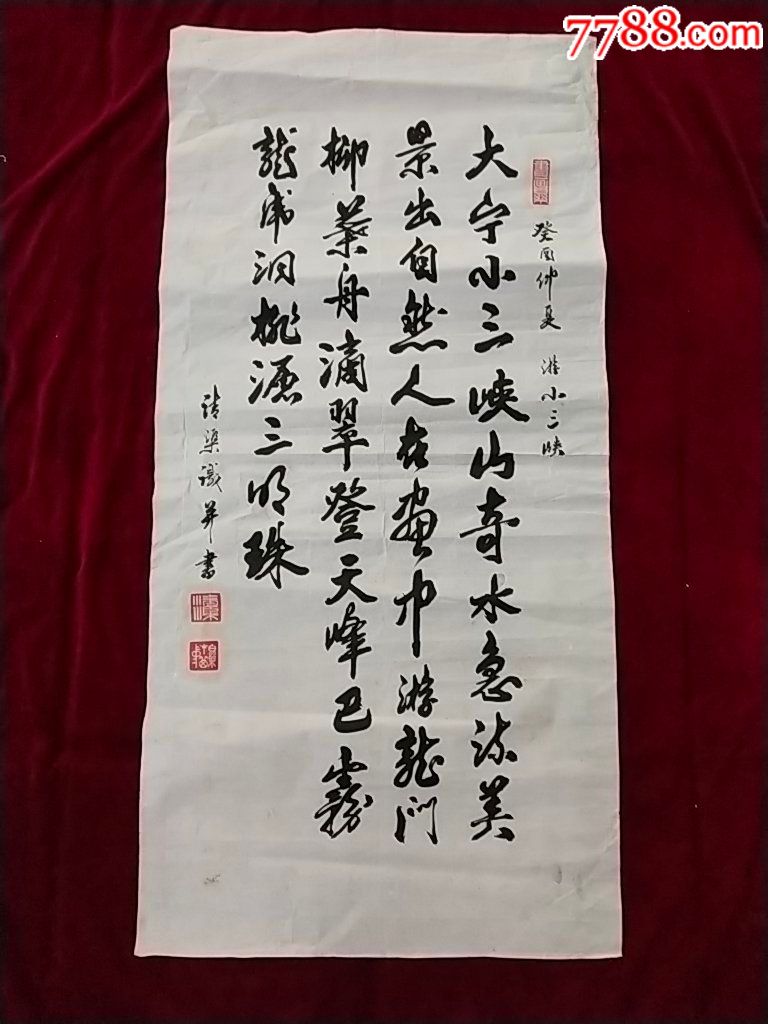 7788.com
癸酉仲夏 游小三峡
大宁小三峡山奇水急流美
景出自然人在畫中游龍门
柳葉舟滴翠登天峰巴霧
龍虎洞桃源三明珠
渠識并書